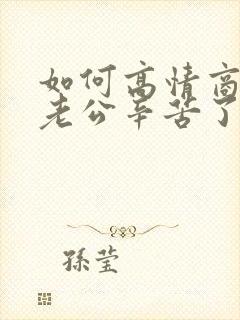 如何高情商
老公辛苦了
孫莹